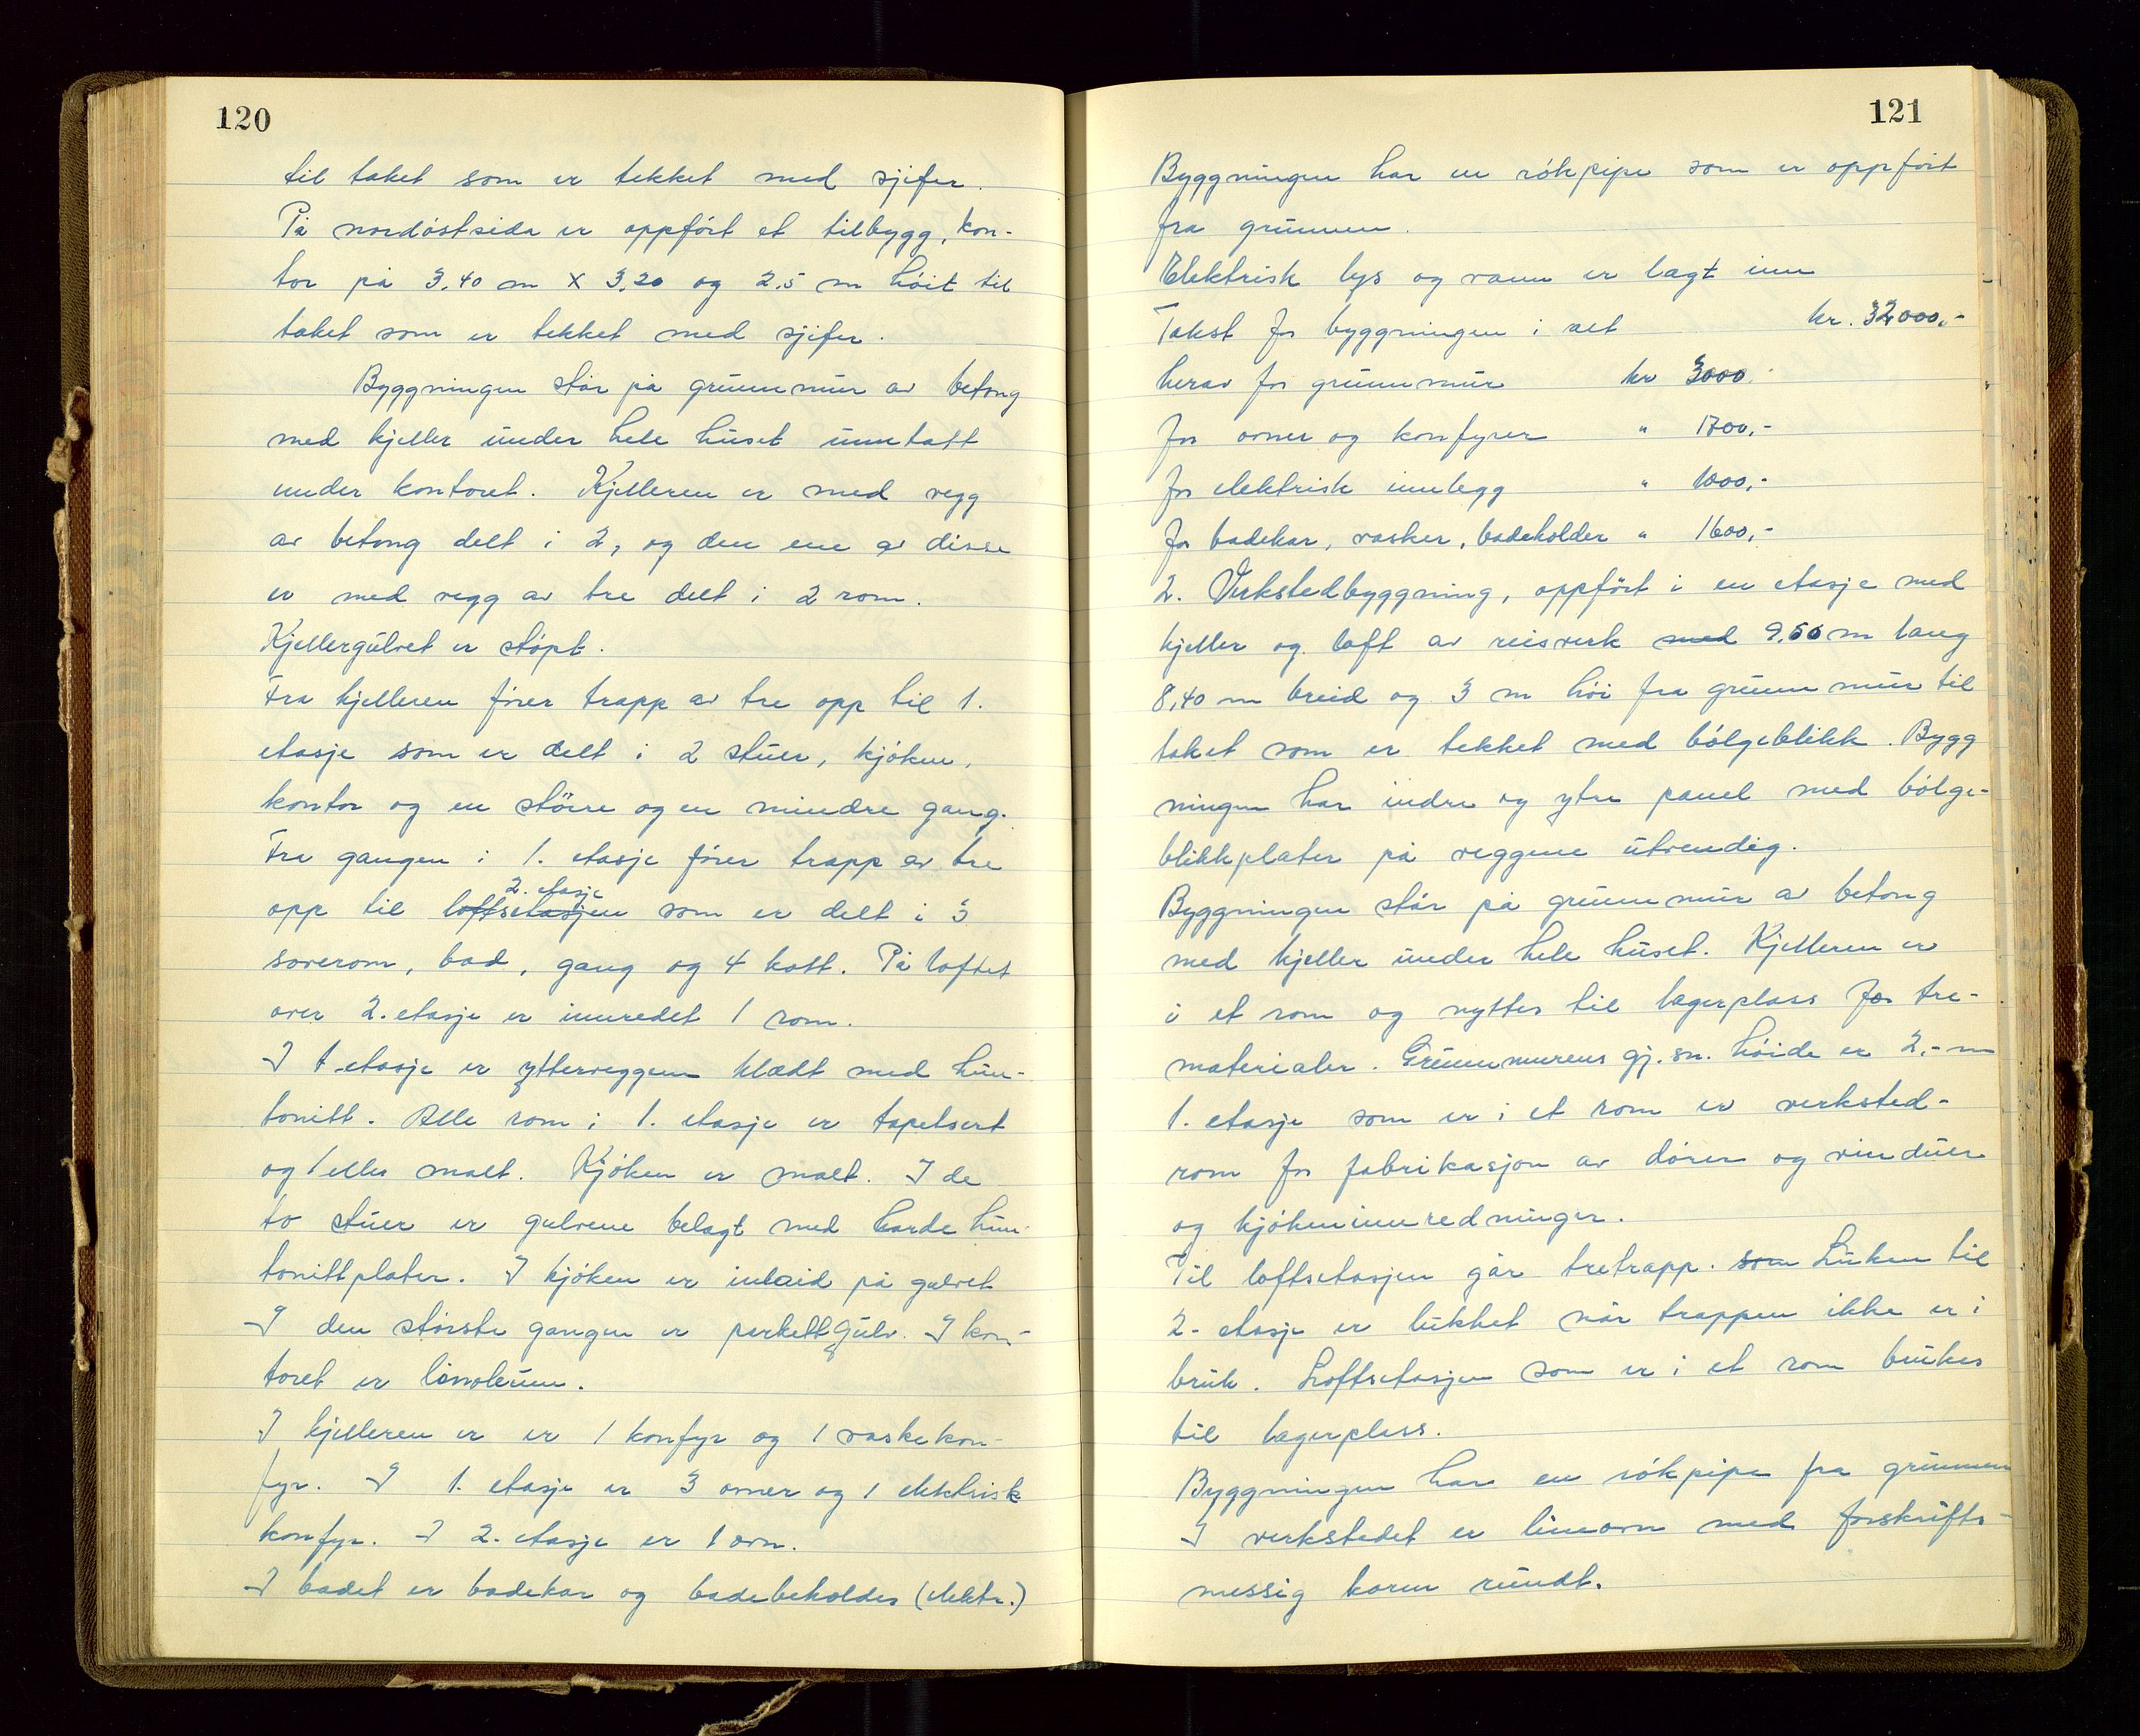 120
til taket som er tekket med sjifer.
På nordóstsida er oppfórt et tilbygg, kon-
tor på 3,40 m x 3,20 og 2,5 m hóit til
taket som er tekket med sjifer.
Byggningen står på grunnmur av betong
med kjeller under hele huset unntatt
under kontoret. Kjelleren er med vegg
av betong delt i 2, og den ene av disse
er med vegg av tre delt i 2 rom.
Kjellergulvet er stópt.
Fra kjelleren fórer trapp av tre opp til 1.
etasje som er delt i 2 stuer, kjóken,
kontor og en större og en mindre gang.
Fra gangen i 1. etasje fórer trapp av tre
2. etasje
opp til loftsetasjen som er delt i 3
soverom, bad, gang og 4 kott. På loftet
over 2. etasje er innredet 1 rom.
I 1. etasje er ytterveggene klædt med hun-
tonitt. Alle rom i 1. etasje er tapetsert
og/eller malt. Kjóken er malt. I de
to stuer er gulvene belagt med harde hun-
tonittplater. I kjóken er inlaid på gulvet
I den stórste gangen er parkettgulv. I kon-
toret er linoleum.
I kjelleren er er 1 komfyr og 1 vaskekom-
fyr. I 1. etasje er 3 ovner og 1 elektrisk
komfyr. I 2. etasje er 1 ovn.
I badet er badekar og badebeholder (elektr.)
121
Byggningen har en rókpipe som er oppfórt
fra grunnen.
Elektrisk lys og vann er lagt inn
Takst for byggningen i alt kr. 32000,-
herav for grunnmur kr 3000.
for ovner og komfyrer " 1700,-
for elektrisk innlegg " 1000,-
for badekar, vasker, badeholder " 1600,-
2. Verkstedbyggning, oppfört i en etasje med
kjeller og loft av reisverk med 9,60 m lang
8,40 m breid og 3 m hói fra grunnmur til
taket som er tekket med bólgeblikk. Bygg
ningen har indre og ytre panel med bólge-
blikkplater på veggene utvendig.
Byggningen står på grunnmur av betong
med kjeller under hele huset. Kjelleren er
i et rom og nyttes til lagerplass for tre-
materialer. Grunnmurens gj.sn. hóide er 2,- m
1. etasje som er i et rom er verksted-
rom for fabrikasjon av dórer og vinduer
og kjókeninnredninger.
Til loftsetasjen går tretrapp. som Luken til
2- etasje er lukket når trappen ikke er i
bruk. Loftsetasjen som er i et rom brukes
til lagerplass.
Byggningen har en rókpipe fra grunnen
I verkstedet er limovn med forskrifts-
messig karm rundt.